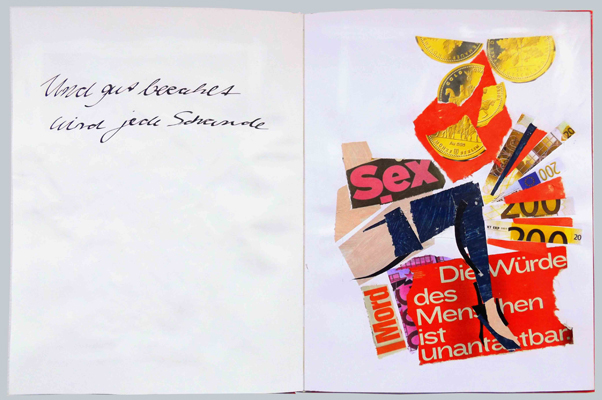 Und gut bezahlt
wird jede Schande
Sex
200
200
200
20
Mord
Die Würde
des
Menschen
ist
unantastbar